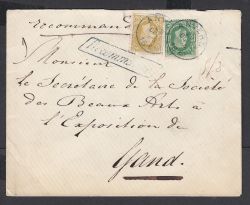 recommandée
Monsieur
le Secrétaire de la Société
des Beaux Arts à
l'Exposition de
Gand.